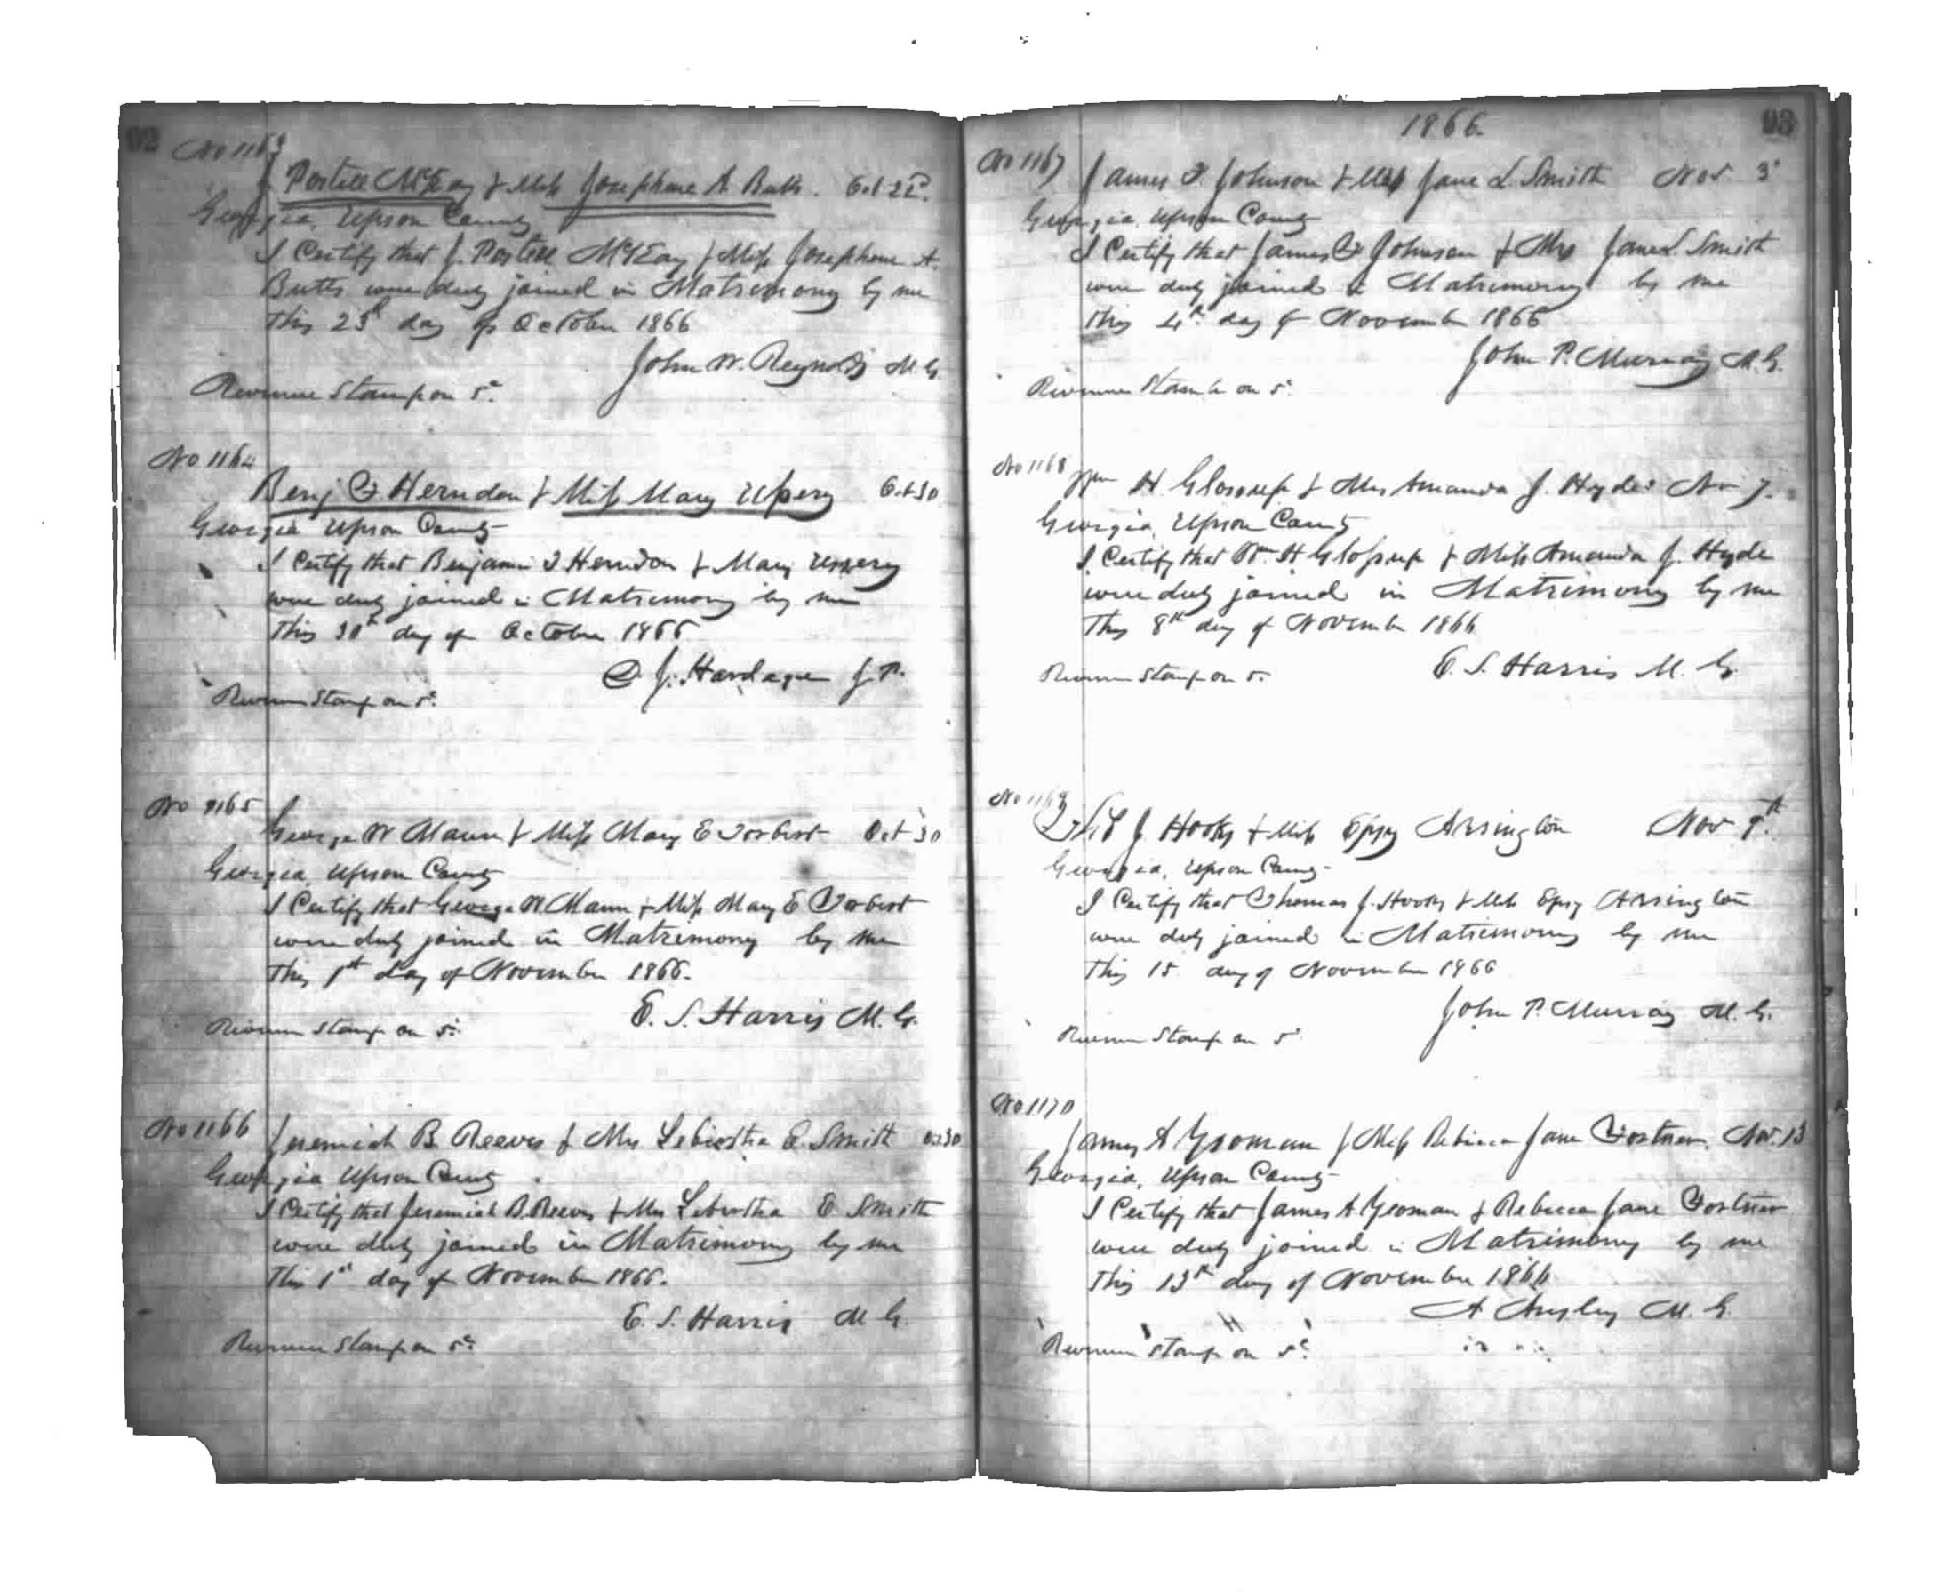 92
No 1163
J Postell McKay & Miss Josephine A Butts. Oct 22d.
Georgia, Upson County
I Certify that J. Postell McKay & Miss Josephine A.
Butts were duly joined in Matrimony by me
This 23d day of October 1866
John W. Reynolds M G.
Revenue Stamp on 5c
No 1164
Benj T Herndon & Miss Mary Ussery Oct 30
Georgia Upson County
I Certify that Benjamin T Herndon & Mary Ussery
were duly joined in Matrimony by me
This 30th day of October 1866
J. Hardage J. P.
Revenue Stamp on 5c
No 1165
George W Mann & Miss Mary E Torbert Oct 30
Georgia, Upson County
I Certify that George W Mann & Miss Mary E Torbert
were duly joined in Matrimony by me
This 1st day of November 1866.
E. S. Harris M. G.
Revenue Stamp on 5c
No 1166
Jeremiah B Reeves & Mrs E. Smith Oct 30
Georgia Upson County
I Certify that Jeremiah B. Reeves & Mrs E Smith
were duly joined in Matrimony by me
This 1st day of November 1866.
E. S. Harris M G.
Revenue Stamp on 5c
1866. 93
No 1167
James T. Johnson & Miss Jane L Smith Nov 3d
Georgia, Upson County
I Certify that James T Johnson & Mrs Jane L Smith
were duly joined in Matrimony by me
This 4th day of November 1866
John P. Murray M. G.
Revenue Stamp on 5c
No 1168
Wm H Glossup & Mrs Amanda J. Hyde Nov 7.
Georgia, Upson County
I Certify that W. H Glossup & Miss Amanda J. Hyde
were duly joined in Matrimony by me
This 8th day of November 1866
E. S. Harris M. G.
Revenue Stamp on 5c
No 1169
J Hooks & Miss Epsy Arrington Nov 9th
Georgia, Upson County
I Certify that Thomas J. Hooks & Miss Epsy Arrington
were duly joined in Matrimony by me
This 15 day of November 1866
John P. Murray M. G.
Revenue Stamp on 5c
No 1170
James A Yeoman & Miss Rebecca Jane Fortner. Nov. 13
Georgia, Upson County
I Certify that James A Yeoman & Rebecca Jane Fortner
were duly joined in Matrimony by me
This 13th day of November 1866
A Ansley M. G.
Revenue Stamp on 5c